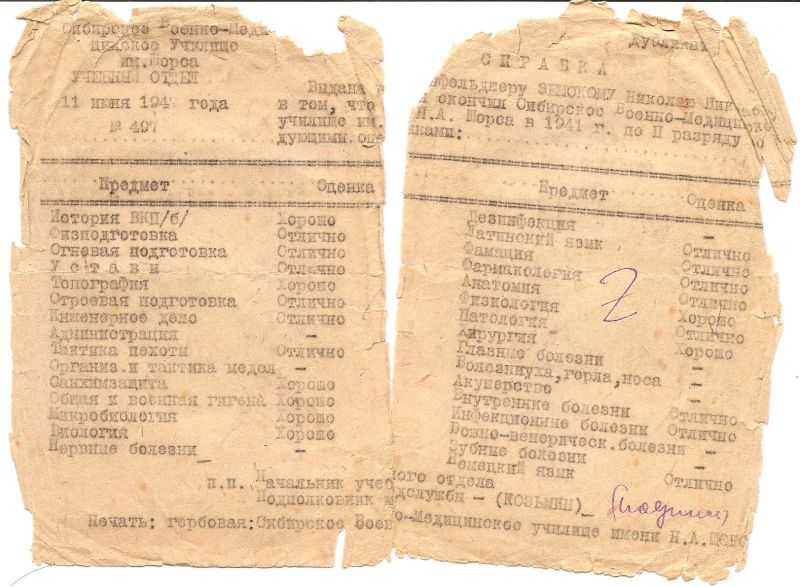 Сибирское Военно-Меди-
цинское Училище
им.Щорса
УЧЕБНЫЙ ОТДЕЛ
11 июня 1947 года
№ 497
Дубликат
СПРАВКА
Выдана в фельдшеру ЗЕМСКОМУ Николаю
в том, что окончил Сибирское Военно-Медицинское
училище им. Н.А. Щорса в 1941 г. по II разряду
дующими оценками:
Предмет Оценка
История ВКП/б/ Хорошо
Физподготовка Отлично
Огневая подготовка Отлично
Уставы Отлично
Топография Хорошо
Строевая подготовка Отлично
Инженерное дело Отлично
Администрация –
Тактика пехоти Отлично
Организ.и тактика медсл –
Санхимзащита Хорошо
Общая и военная гигена Хорошо
Микробиология Хорошо
Биология Хорошо
Нервные болезни –
Предмет Оценка
Дезинфекция –
Латинский язык Отлично
Фамация Отлично
Фармакология Отлично
Анатомия Отлично
Физиология Хорошо
Патология Отлично
Хирургия Хорошо
Глазные болезни –
Болезниуха,горла,носа –
Акушерство –
Внутренние болезни Отлично
Инфекционные болезни Отлично
Кожно-венерическ.болезни –
Зубные болезни –
Немецкий язык Отлично
п.п. Начальник учебного отдела
Подполковник медслужбы – (КОЗЬМИН) (подпись)
Печать: гербовая:Сибирское Военно-Медицинское училище имени Н.А.ЩОРС